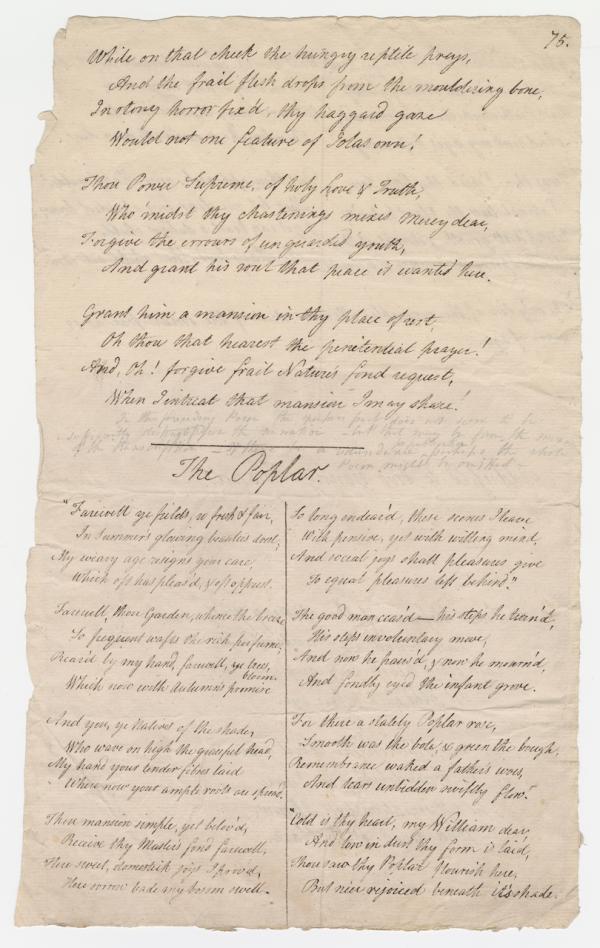 75.
While on that cheek the hungry reptile preys,
And the frail flesh drops from the mouldering bone,
In stony horror fix'd, thy haggard gaze
Would not one feature of Iolas own!
Thou Power Supreme, of holy Love & Truth,
Who 'midst thy chastenings mixes Mercy dear,
Forgive the errours of unguarded youth,
And grant his soul that peace it wanted here.
Grant him a mansion in thy place of rest,
Oh thou that hearest the penitential prayer!
And, Oh! forgive frail Nature's fond request,
When I intreat that mansion I may share!
In the preceding Poem the does not seem to be
sufficiently distinct from the narration - but this may be from the
of the transcription - perhaps the whole
Poem might be omitted -
The Poplar.
"Farewell ye fields, so fresh & fair,
In Summer's glowing beauties drest,
My weary age resigns your care,
Which oft has pleas'd, & oft opprest.
Farewell, thou Garden, whence the breeze
So frequent wafts the rich perfume,
Rear'd by my hand, farewell, ye trees,
bloom.
Which now with Autumn's promise
And you, ye Natives of the shade,
Who wave on high the graceful head,
My hand your tender fibres laid
Where now your ample roots are spread.
Thou mansion simple, yet belov'd,
Receive thy Master's fond farewell,
Here sweet, domestick joys I prov'd,
Here sorrow bade my bosom swell.
So long endear'd, these scenes I leave
With pensive, yet with willing mind,
And social joys shall pleasures give
To equal pleasures left behind."
The good man ceas'd — his steps he turn'd,
His steps involuntary move,
And now he paus'd, & now he mourn'd,
And fondly eyed the infant grove.
For there a stately Poplar rose,
Smooth was the bole, & green the bough,
Remembrance waked a father's woes,
And tears unbidden swiftly flow.
"Cold is thy heart, my William dear,
And low in dust thy form is laid,
Thou saw thy Poplar flourish here,
But ne'er rejoiced beneath it's shade.